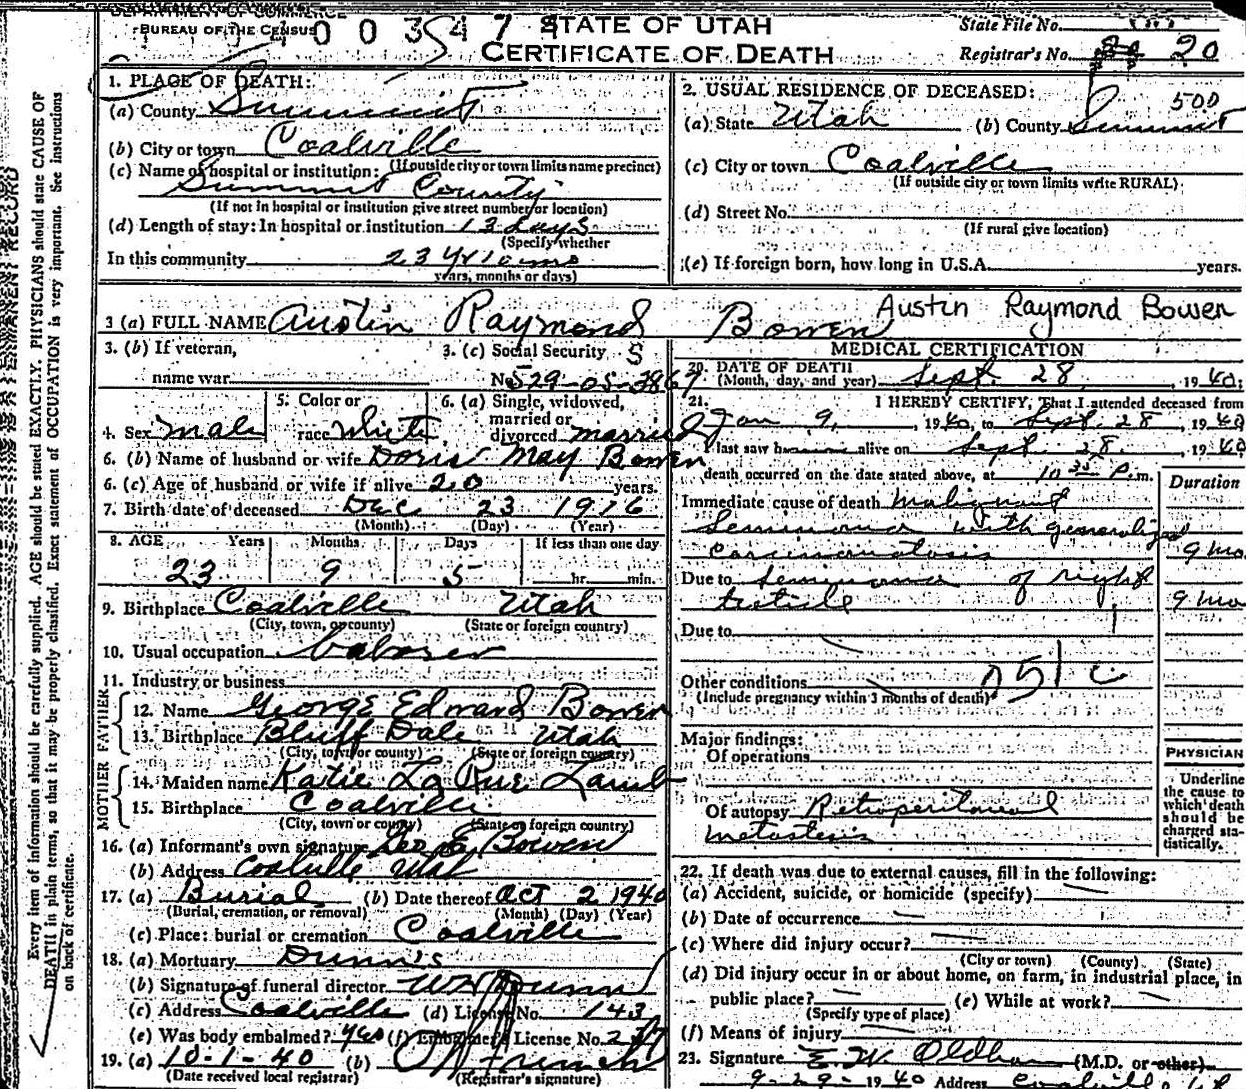 DEPARTMENT OF COMMERCE
BUREAU OF THE CENSUS
STATE OF UTAH
CERTIFICATE OF DEATH
State File No.
Registrar's No. 20
1. PLACE OF DEATH:
(a) County Summit
(b) City or town Coalville
(If outside city or town limits name precinct)
(c) Name of hospital or institution:
Summit County
(If not in hospital or institution give street number or location)
(d) Length of stay: In hospital or institution 13 days
(Specify whether
In this community 23 yr 10 mo
years, months or days)
2. USUAL RESIDENCE OF DECEASED:
500
(a) State Utah (b) County Summit
(c) City or town Coalville
(If outside city or town limits write RURAL)
(d) Street No.
(If rural give location)
(e) If foreign born, how long in U.S.A. years.
3 (a) FULL NAME Austin Raymond Bowen
Austin Raymond Bowen
3. (b) If veteran,
name war
3. (c) Social Security
No. 529-05-3867
4. Sex Male
5. Color or
race White
6. (a) Single, widowed,
married or
divorced married
6. (b) Name of husband or wife Doris May Bowen
6. (c) Age of husband or wife if alive 20 years.
7. Birth date of deceased Dec 23 1916
(Month) (Day) (Year)
8. AGE Years Months Days If less than one day
23 9 5 hr. min.
9. Birthplace Coalville Utah
(City, town, or county) (State or foreign country)
10. Usual occupation Laborer
11. Industry or business
FATHER
12. Name George Edward Bowen
13. Birthplace Bluff Dale Utah
(City, town or county) (State or foreign country)
MOTHER
14. Maiden name Katie La Rue Lamb
15. Birthplace Coalville
(City, town or county) (State or foreign country)
16. (a) Informant's own signature Geo E Bowen
(b) Address Coalville Utah
17. (a) Burial (b) Date thereof Oct 2 1940
(Burial, cremation, or removal) (Month) (Day) (Year)
(c) Place: burial or cremation Coalville
18. (a) Mortuary Dunn's
(b) Signature of funeral director Dunn
(c) Address Coalville (d) License No. 143
(e) Was body embalmed? yes (f) Embalmer's License No.
19. (a) 10-1-40 (b)
(Date received local registrar) (Registrar's signature)
MEDICAL CERTIFICATION
20. DATE OF DEATH
(Month, day, and year) Sept. 28, 1940
21. I HEREBY CERTIFY, That I attended deceased from
Jan 9, 1940, to Sept. 28 1940
I last saw h alive on Sept. 28, 1940
death occurred on the date stated above, at 10 35 P.m.
Duration
Immediate cause of death Malignant
Seminoma with generalized
carcinomatosis 9 mo
Due to Seminoma of right
testicle 9 mo
Due to
Other conditions
(Include pregnancy within 3 months of death)
Major findings:
Of operations
Of autopsy Retroperitoneal
metastasis
PHYSICIAN
Underline
the cause to
which death
should be
charged sta-
tistically.
22. If death was due to external causes, fill in the following:
(a) Accident, suicide, or homicide (specify)
(b) Date of occurrence
(c) Where did injury occur?
(City or town) (County) (State)
(d) Did injury occur in or about home, on farm, in industrial place, in
public place? (e) While at work?
(Specify type of place)
(f) Means of injury
23. Signature E. W. Oldham (M.D. or other)
9-29-1940 Address
Every item of information should be carefully supplied. AGE should be stated EXACTLY. PHYSICIANS should state CAUSE OF
DEATH in plain terms, so that it may be properly classified. Exact statement of OCCUPATION is very important. See Instructions
on back of certificate.